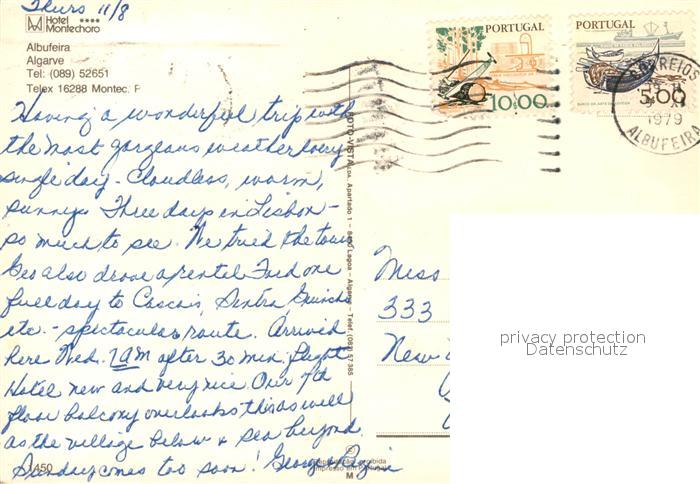 Thurs 11/8
Hotel ****
Montechoro
Albufeira
Algarve
Tel: (089) 52651
Telex 16288 Montec. P
PORTUGAL
10$00
PORTUGAL
5$00
CORREIOS
1979
ALBUFEIRA
Having a wonderful trip with
the most gorgeous weather every
single day - Cloudless, warm,
sunny. Three days in Lisbon -
so much to see. We tried the tours
Geo also drove a rental Ford one
full day to Cascais, Sintra Guincho
etc. - spectacular route. Arrived
here Wed. 1 AM after 30 min. flight
Hotel new and very nice. Our 7th
floor balcony overlooks this as well
as the village below & sea beyond.
Sunday comes too soon! George &
1450
FOTO-VISTA, Lda. Apartado 1 - Lagoa - Algarve - Telef. (082) 57385
Reprodução proibida
Impresso em Portugal
M
Miss
333
New
privacy protection
Datenschutz